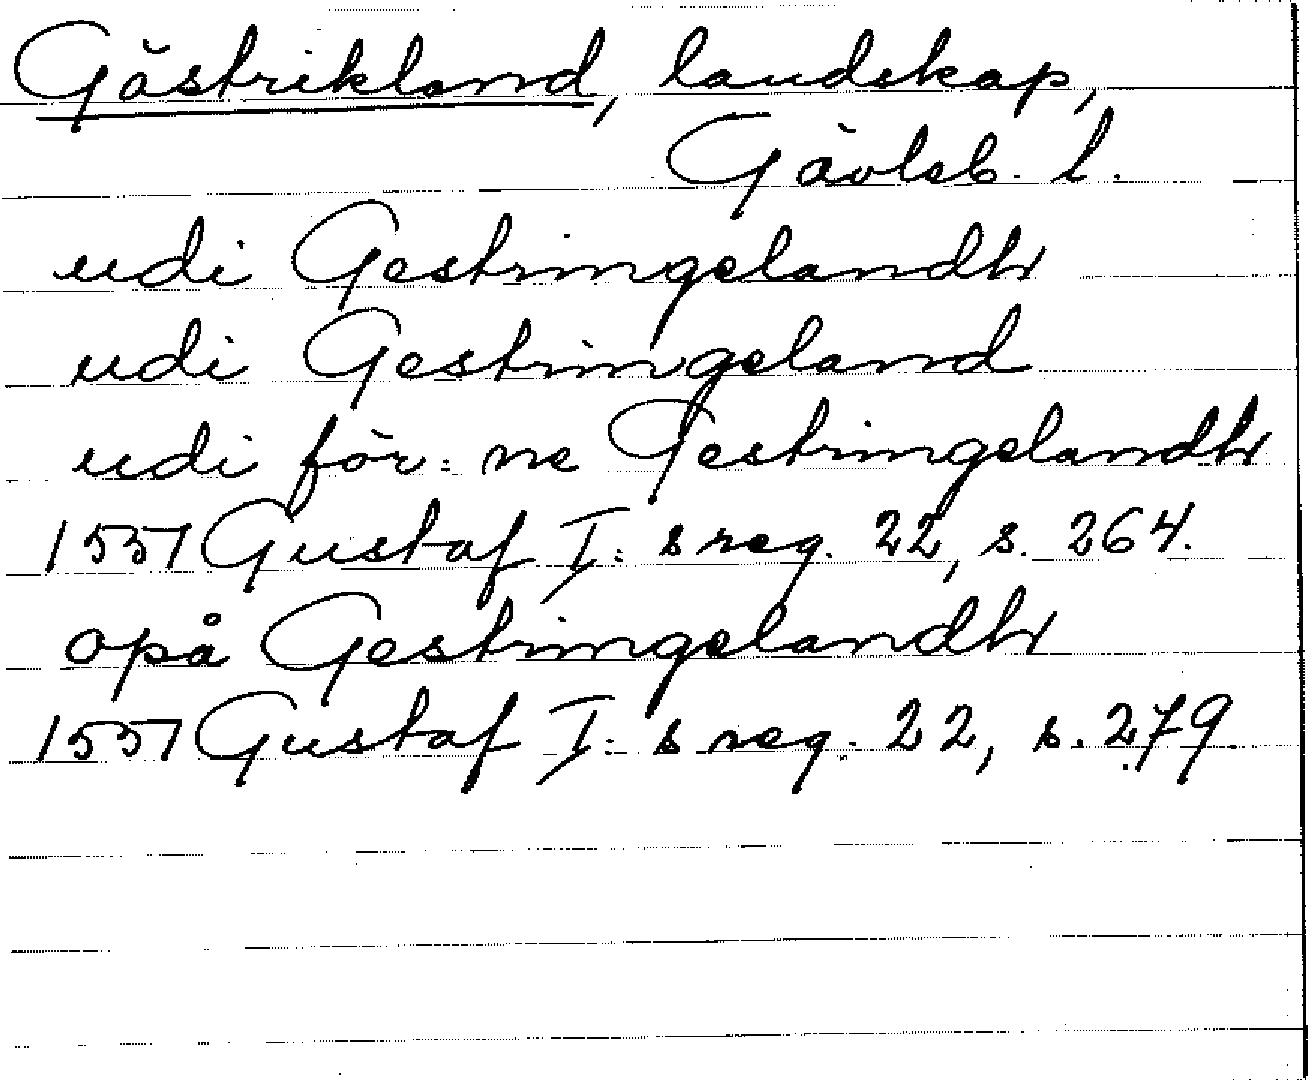 Gästrikland, landskap,
Gävleb. l.
udi Gestringelandh
udi Gestringeland
udi för: ne Gestringelandh
1551 Gustaf I: s reg. 22, s. 264.
opå Gestringelandh
1551 Gustaf I: s reg. 22, s. 279